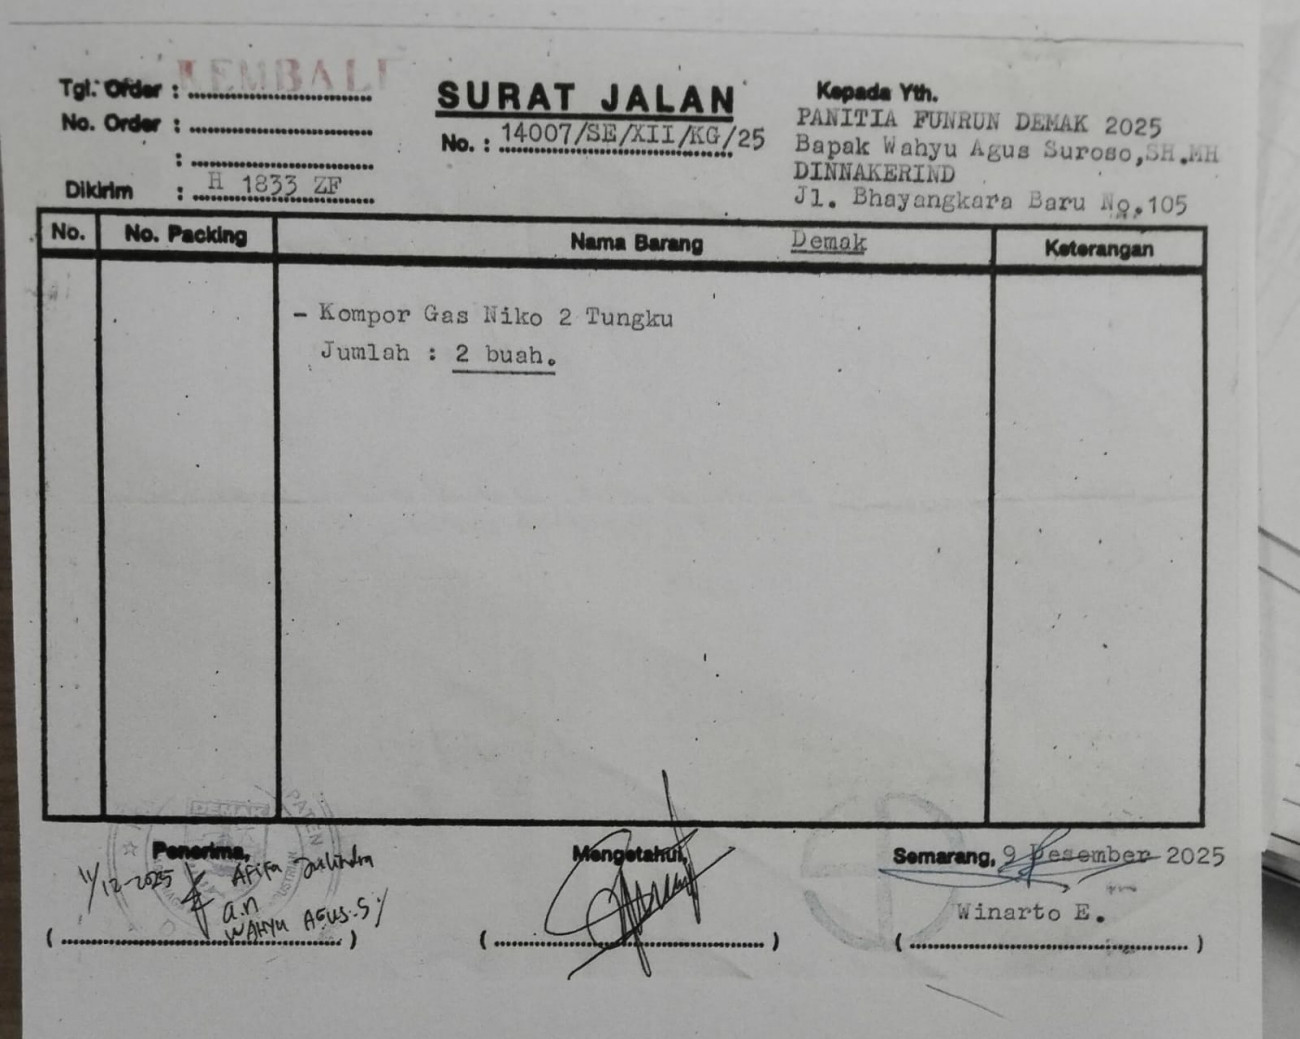 KEMBALI
Tgl. Order :
No. Order :
:
Dikirim : H 1833 ZF
SURAT JALAN
No. : 14007/SE/XII/KG/25
Kepada Yth.
PANITIA FUNRUN DEMAK 2025
Bapak Wahyu Agus Suroso,SH.MH
DINNAKERIND
Jl. Bhayangkara Baru No.105
Demak
No.
No. Packing
Nama Barang
Keterangan
- Kompor Gas Niko 2 Tungku
Jumlah : 2 buah.
DEMAK
Penerima,
11/12-2025
Afifa
a.n
WAHYU AGUS.S
Mengetahui,
Semarang, 9 Desember 2025
Winarto E.